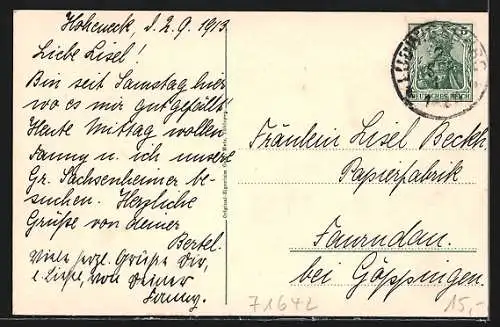 Hoheneck, d. 2.9.1913
Liebe Lisel!
Bin seit Samstag hier
wo es mir gut gefällt!
Heute Mittag wollen
Fanny u. ich unsere
Gr. Sachsenheimer be-
suchen. Herzliche
Grüße von deiner
Bertel.
Viele herzl. Grüße Dir,
l. Liesel, von Deiner
Fanny.
DEUTSCHES REICH
Fräulein Lisel Beckh
Papierfabrik
Faurndau.
bei Göppingen.
71642
15,-